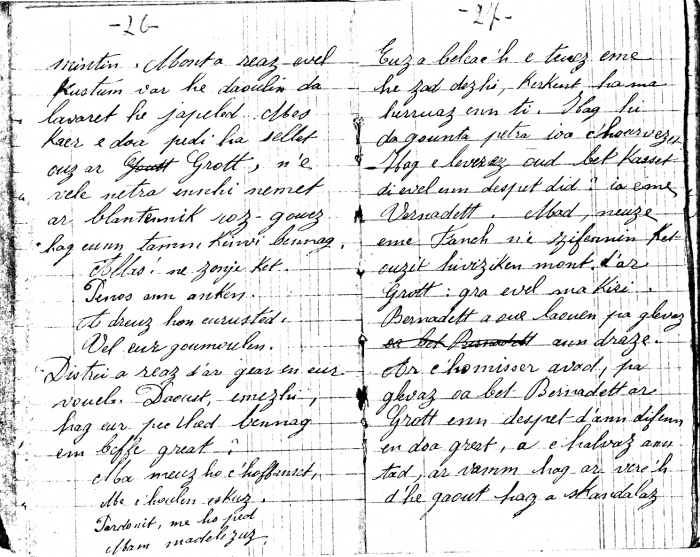 -26-
mintin. Mont a reaz evel
kustum var he daoulin da
lavaret he japeled. Mes
kaer e doa pedi ha sellet
ouz ar Grott, n'e
vele netra ennhi nemet
ar blantennik roz-gouez
hag eunn tamm kinvi bennag.
Allas! ne zonje ket.
Penos ann anken.
A dreuz hon eurusted.
Vel eur goumoulen.
Distrei a reaz d'ar gear en eur
vouela. Daoust, emezhi,
hag eur pec'hed bennag
em beffe great?
Ma meuz ho c'hoffanset,
Me c'houlen eskuz.
Pardonit, me ho ped
Mam madelezuz.
-27-
Euz a beleac'h e teuez eme
he zad dezhi, kerkent ha ma
herruaz enn ti. Hag hi
da gounta petra ioa c'hoarvezet
Hag e leverez oud bet kasset
di evel enn despet did? ia eme
Vernadett. Mad, neuze
eme Fanch n'e zifennin ket
ouzit hiviziken mont d'ar
Grott: gra evel ma kiri.
Bernadett a oue laouen pa glevaz
oa bet Bernadett ann draze.
Ar c'homisser avad, pa
glevaz oa bet Bernadett ar
Grott enn despet d'ann difenn
en doa great, a c'halvaz ann
tad, ar vamm hag ar verc'h
d'he gaout hag a skandalaz